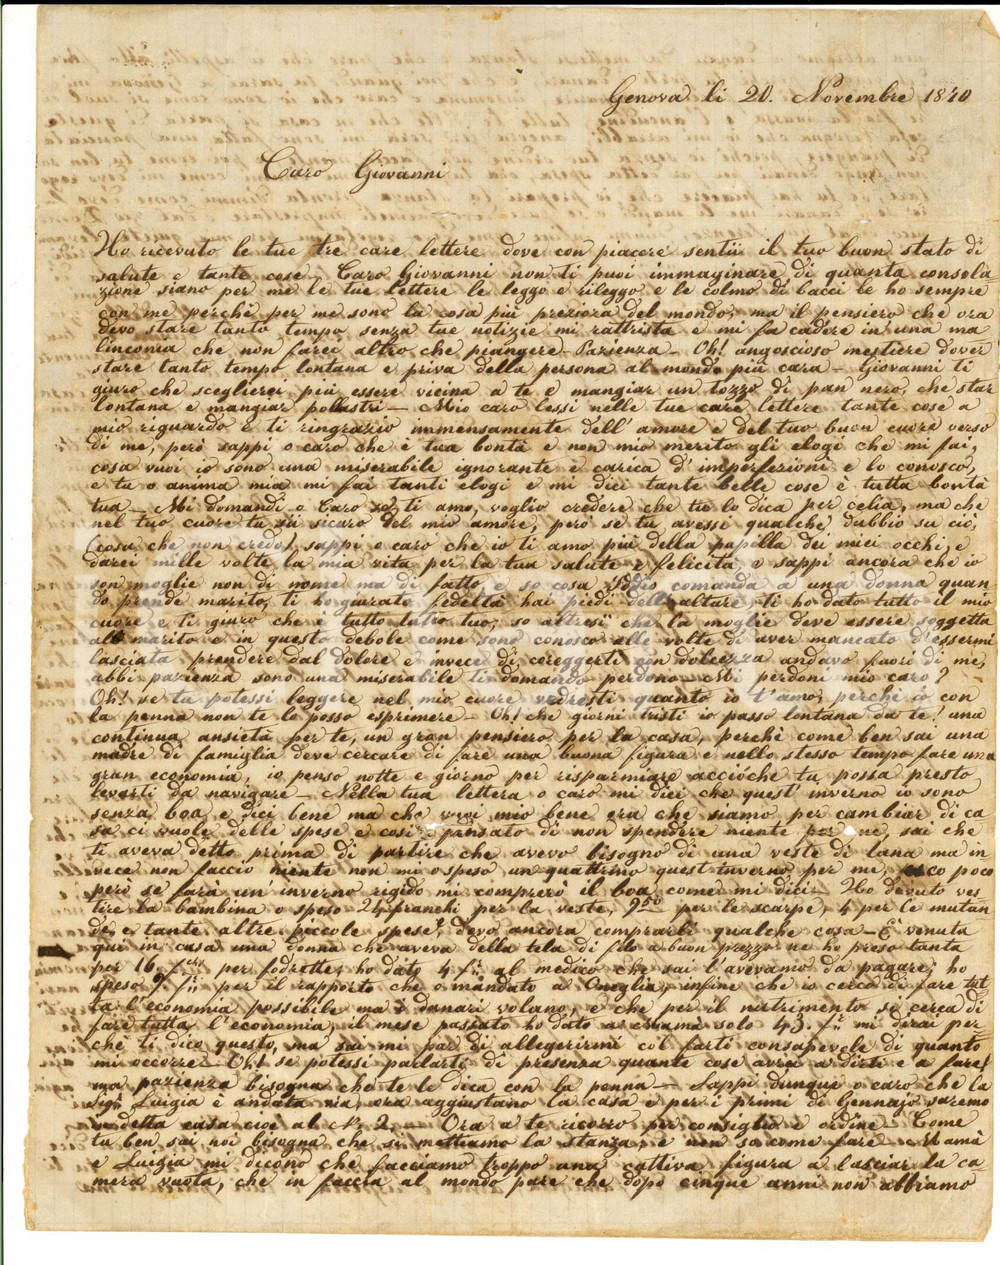 Genova li 20. Novembre 1840
Caro Giovanni
Ho ricevuto le tue tre care lettere dove con piacere sentii il tuo buon stato di
salute e tante cose. Caro Giovanni non ti puoi immaginare di quanta consola
zione siano per me le tue lettere le leggo e rileggo e le colmo di bacci le ho sempre
con me perchè per me sono la cosa più preziosa del mondo; ma il pensiero che ora
devo stare tanto tempo senza tue notizie mi rattrista e mi fa cadere in una ma
linconia che non farei altro che piangere - Pazienza - Oh! angoscioso mestiere dover
stare tanto tempo lontana e priva della persona al mondo più cara - Giovanni ti
giuro che sceglierei più essere vicina a te e mangiar un tozzo di pan nero, che star
lontana e mangiar pollastri - Mio caro lessi nelle tue care lettere tante cose a
mio riguardo e ti ringrazio immensamente dell'amore e del tuo buon cuore verso
di me, però sappi o caro che è tua bontà e non mio merito gli elogi che mi fai,
cosa vuoi io sono una miserabile ignorante e carica d'imperfezioni e lo conosco,
e tu o anima mia mi fai tanti elogi e mi dici tante belle cose è tutta bontà
tua - Mi domandi o Caro se ti amo, voglio credere che tu lo dica per celia, ma che
nel tuo cuore tu sii sicaro del mio amore, però se tu avessi qualche dubbio su ciò,
(cosa che non credo) sappi o caro che io ti amo più della papilla dei miei occhi, e
darei mille volte la mia vita per la tua salute e felicità, e sappi ancora che io
son moglie non di nome ma di fatto, e so cosa Iddio comanda a una donna quan
do prende marito, ti ho giurato fedeltà hai piedi dell altare, ti ho dato tutto il mio
cuore e ti giuro che è tutto tutto tuo; so altresii che la moglie deve essere soggetta
al marito e in questo debole come sono conosco alle volte di aver mancato d'essermi
lasciata prendere dal dolore e invece di coreggerti con dolcezza andavo fuori di me,
abbi pazienza sono una miserabile ti domando perdono - Mi perdoni mio caro?
Oh! se tu potessi leggere nel mio cuore vedresti quanto io t'amo, perchè io con
la penna non te lo posso esprimere - Oh! che giorni tristi io passo lontana da te! una
continua ansietà per te, un gran pensiero per la casa, perchè come ben sai una
madre di famiglia deve cercare di fare una buona figura e nello stesso tempo fare una
gran economia, io penso notte e giorno per risparmiare acciòche tu possa presto
levarti da navigare - Nella tua lettera o caro mi dici che quest'inverno io sono
senza boa, e dici bene ma che vuoi mio bene ora che siamo per cambiar di ca
sa ci vuole delle spese e così pansato di non spendere niente per me, sai che
ti aveva detto prima di partire che avevo bisogno di una veste di lana ma in
vece non faccio niente non mo o speso un quattrino quest'inverno per me,   poco
però se farà un'inverno rigido mi comprerò il boa come mi dici - Ho devuto ves
tire la bambina o speso 24 franchi per la veste, 9.50 per le scarpe, 4 per le mutan
de, e tante altre piccole spese, devo ancora comprarli qualche cosa - È venuta
qui in casa una donna che aveva della tela di filo a buon prezzo ne ho preso tanta
per 16. fchi per fodrette; ho dato 4 f. al medico che sai l'avevamo da pagare; ho
speso 9 f. per il rapporto che o mandato a Oneglia, infine che io cerco di fare tut
ta l'economia possibile ma i danari volano, e che per il nutrimento si cerca di
fare tutta l'economia, il mese passato ho dato a mamà solo 43. f. mi dirai per
chè ti dico questo, ma sai mi par di allegerirmi col farti consapevole di quanto
mi occorre - Oh! se potessi parlarti di presenza quante cose avrei a dirti e a fare!
ma pazienza bisogna che te le dica con la penna - Sappi dunque o caro che la
Sigra Luigia è andata via, ora aggiustano la casa e per i primi di Gennajo saremo
in detta casa cioè al N. 2. - Ora a te ricorro per consiglio e ordine - Come
tu ben sai noi bisogna che si mettiamo la stanza, e non so come fare - Mamà
e Luigia mi dicono che facciamo troppo una cattiva figura a lasciar la ca
mera vuota, che in faccia al mondo pare che dopo cinque anni non abbiamo